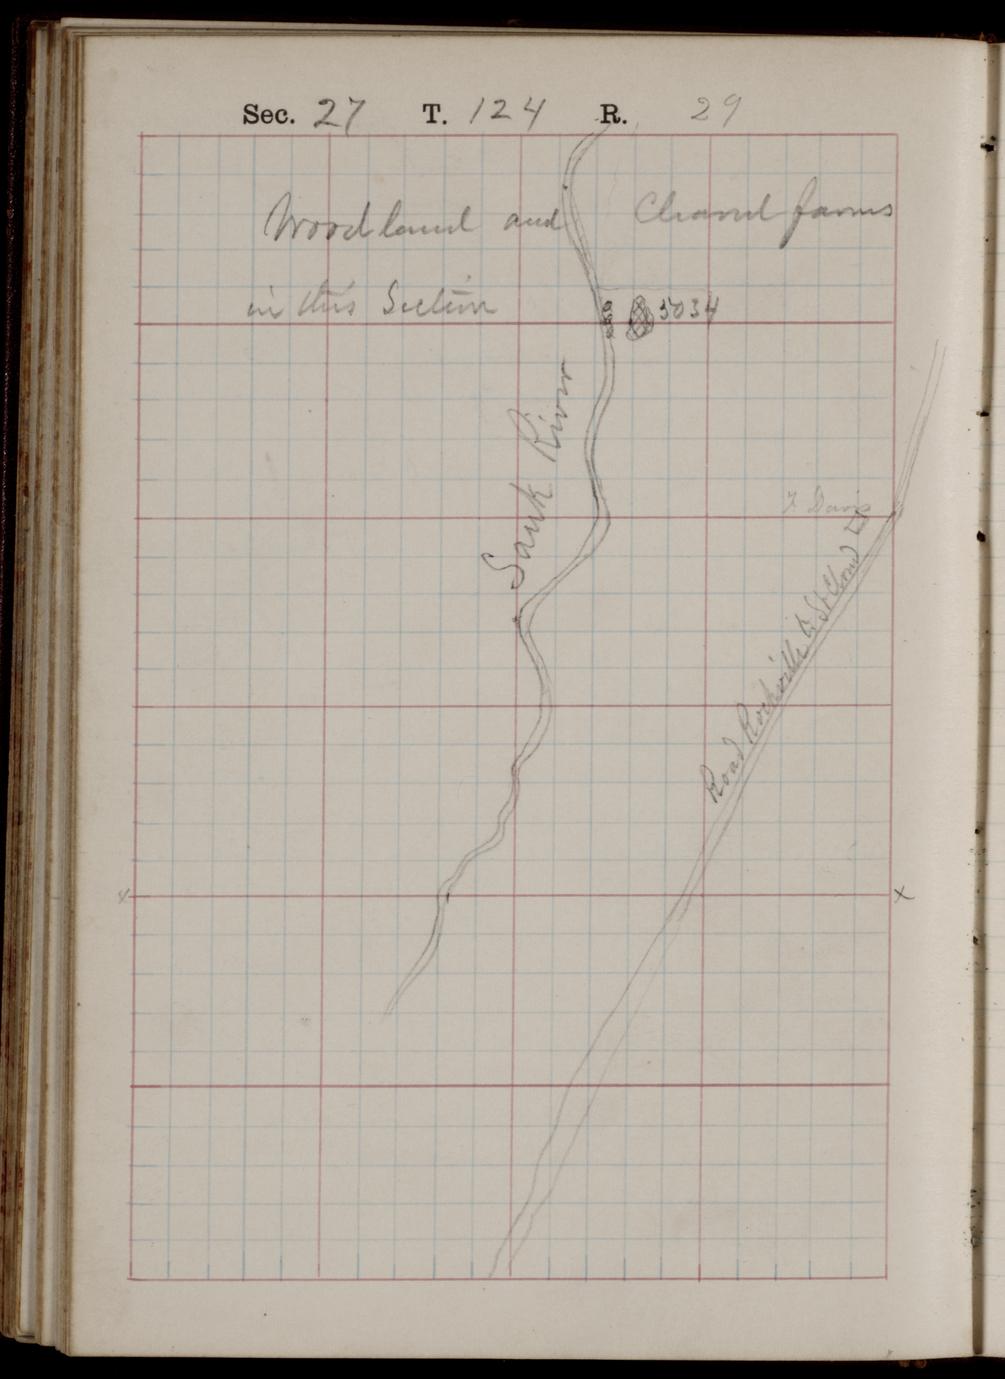 Sec. 27 T. 124 R. 29
Woodland and Cleared farms
in this Section
5034
Sauk River
F. Davis
Road Rockville to St Cloud
x x